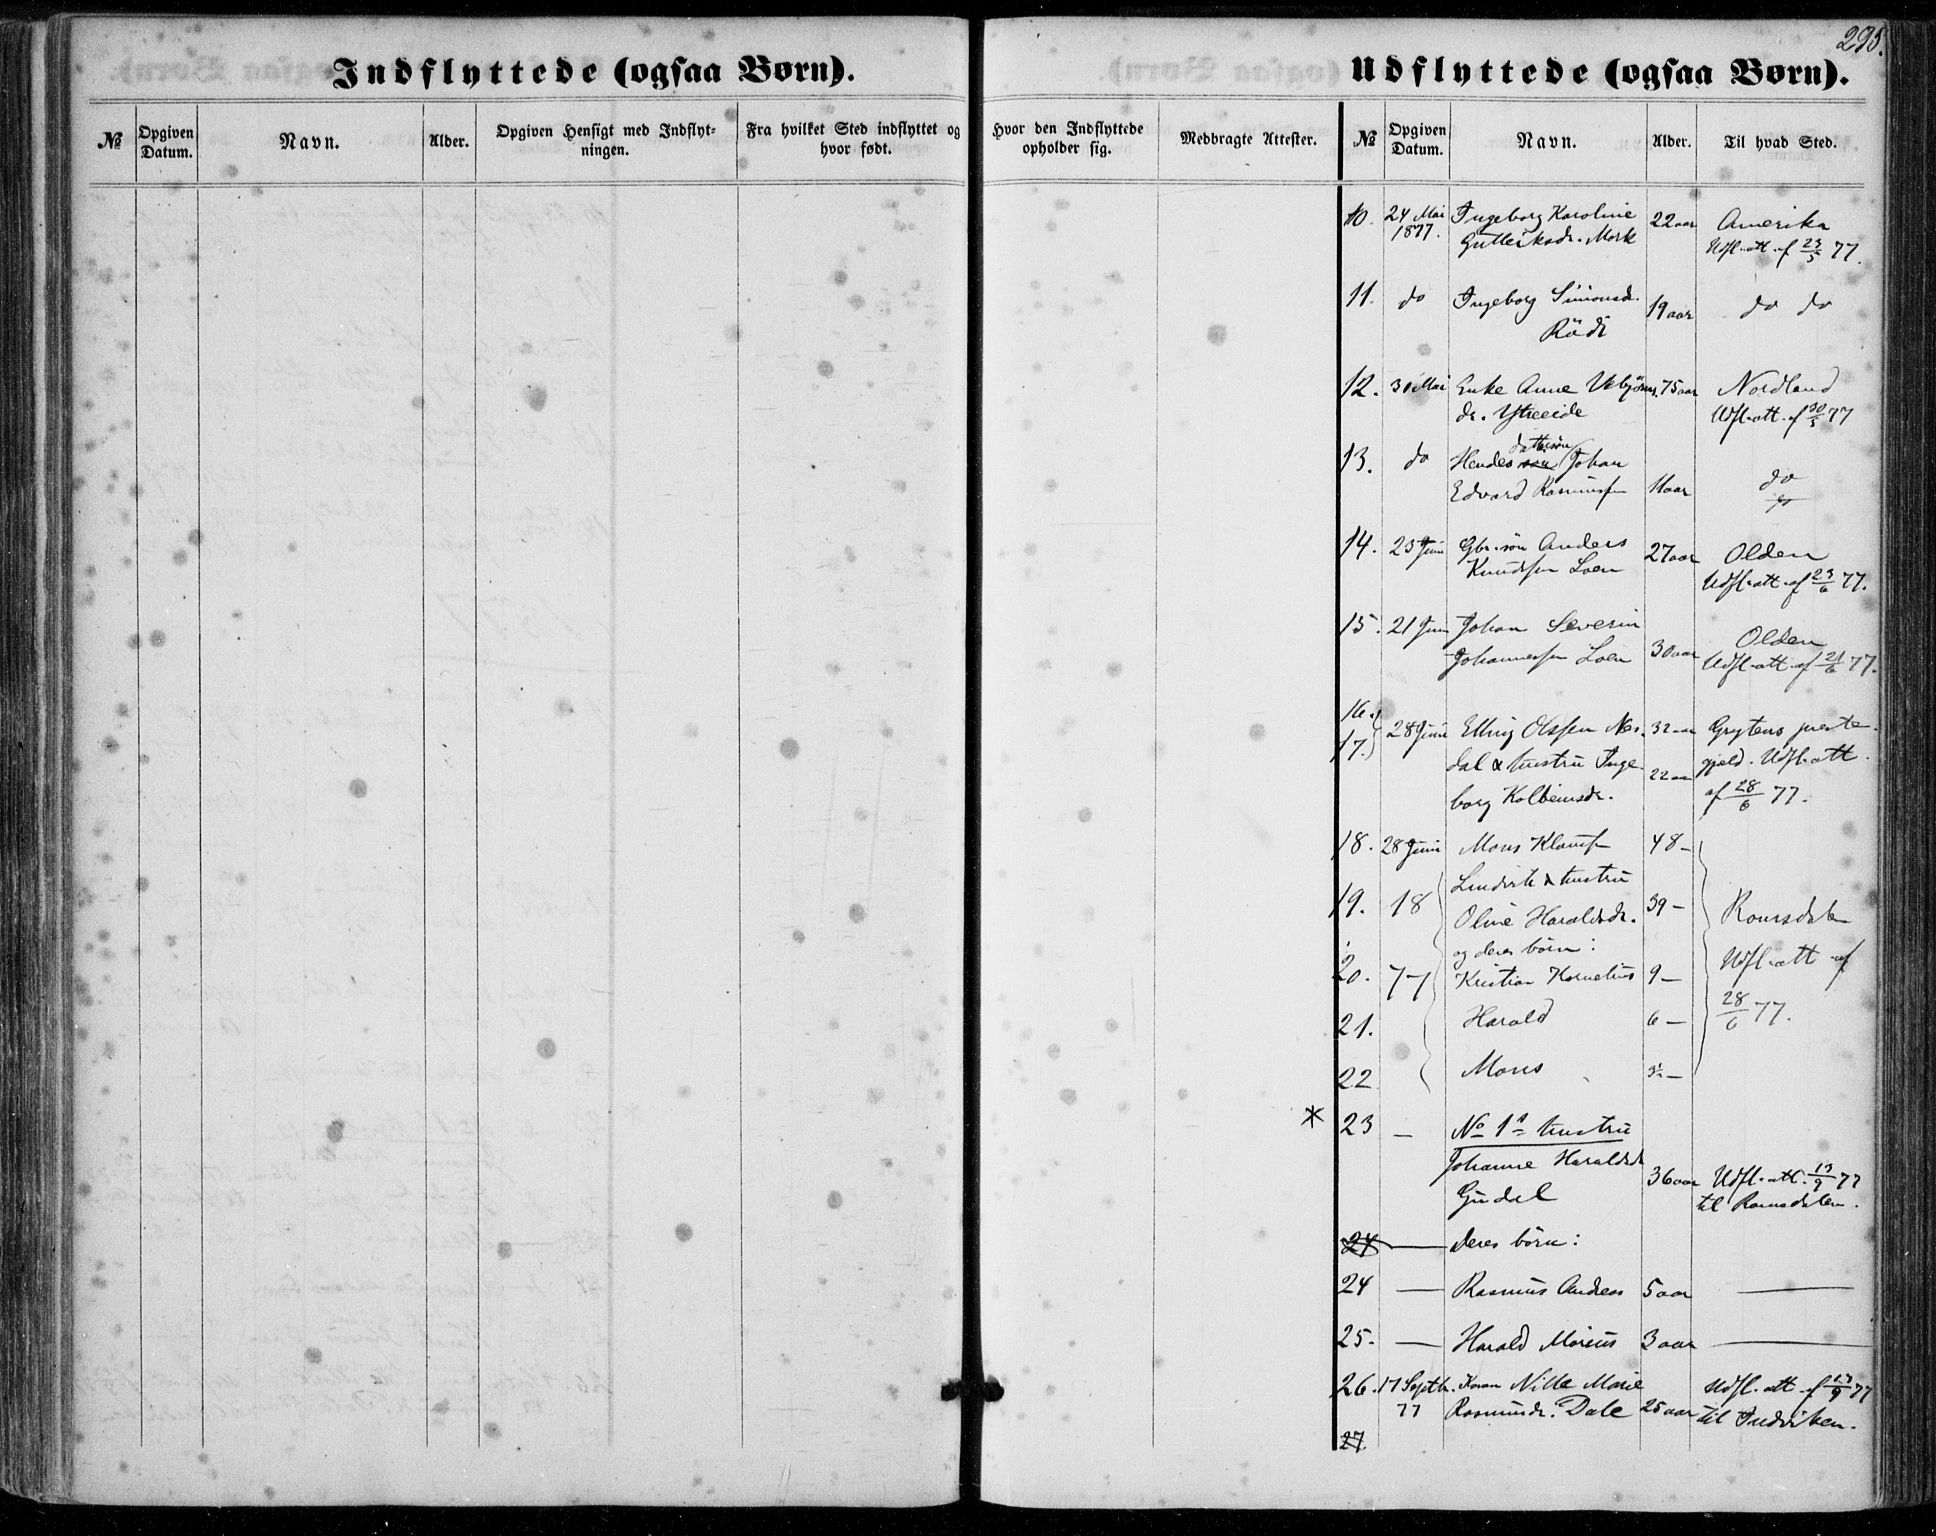 295.
Indflyttede (ogsaa Børn).
Udflyttede (ogsaa Børn).
№
Opgiven Datum.
Navn.
Alder.
Opgiven Hensigt med Indflyt-
ningen.
Fra hvilket Sted indflyttet og
hvor født.
Hvor den Indflyttede
opholder sig.
Medbragte Attester.
№
Opgiven Datum.
Navn.
Alder.
Til hvad Sted.
10. 24 Mai Ingeborg Karoline 22 aar Amerika
1877. Gutteriksdr. Mork Udfl. att. af 23/5 77.
11. do Ingeborg Simonsd. 19 aar do do
Rödi
12. 30 Mai Enke Anne Vebjörns. 75 aar Nordland
dr. Ytreeide Udfl. att. af 30/5 77
dattersön
13. do Hendes sön Johan do
Edvard Rasmussen 11 aar
14. 23 Juni Gbr. sön Anders 27 aar Olden
Knudsen Loen Udfl. att. af 23/6 77.
15. 21 Juni Johan Severin Olden
Johannessen Loen 30 aar Udfl. att. af 21/6 77.
16. 28 Juni Elling Olssen Nes- 32 aar Grytens preste-
17. dal & hustru Inge- 22 aar gjeld. Udfl. att.
borg Kolbeinsdr. af 28/6 77.
18. 28 Juni Mons Klausen 48 –
Lindvik & hustru
19. 18 Oline Haraldsdr. 39 – Romsdalen
og deres börn:
20. 77 Kristian Kornelius 9 – Udfl. att af
21. Harald 6 – 28/6 77.
22 Mons 3½ –
* 23 – No 1a hustru
Johanne Haraldsd. 36 aar Udfl. att. 13/9 77
Gudal til Romsdalen.
24 — deres börn:
24 — Rasmus Andreas 5 aar —
25. — Harald Marius 3 aar —
26. 17 Septb. Karen Nille Marie Udfl. att. af 17/9 77
77 Rasmusdr. Dale 25 aar til Indviken.
27